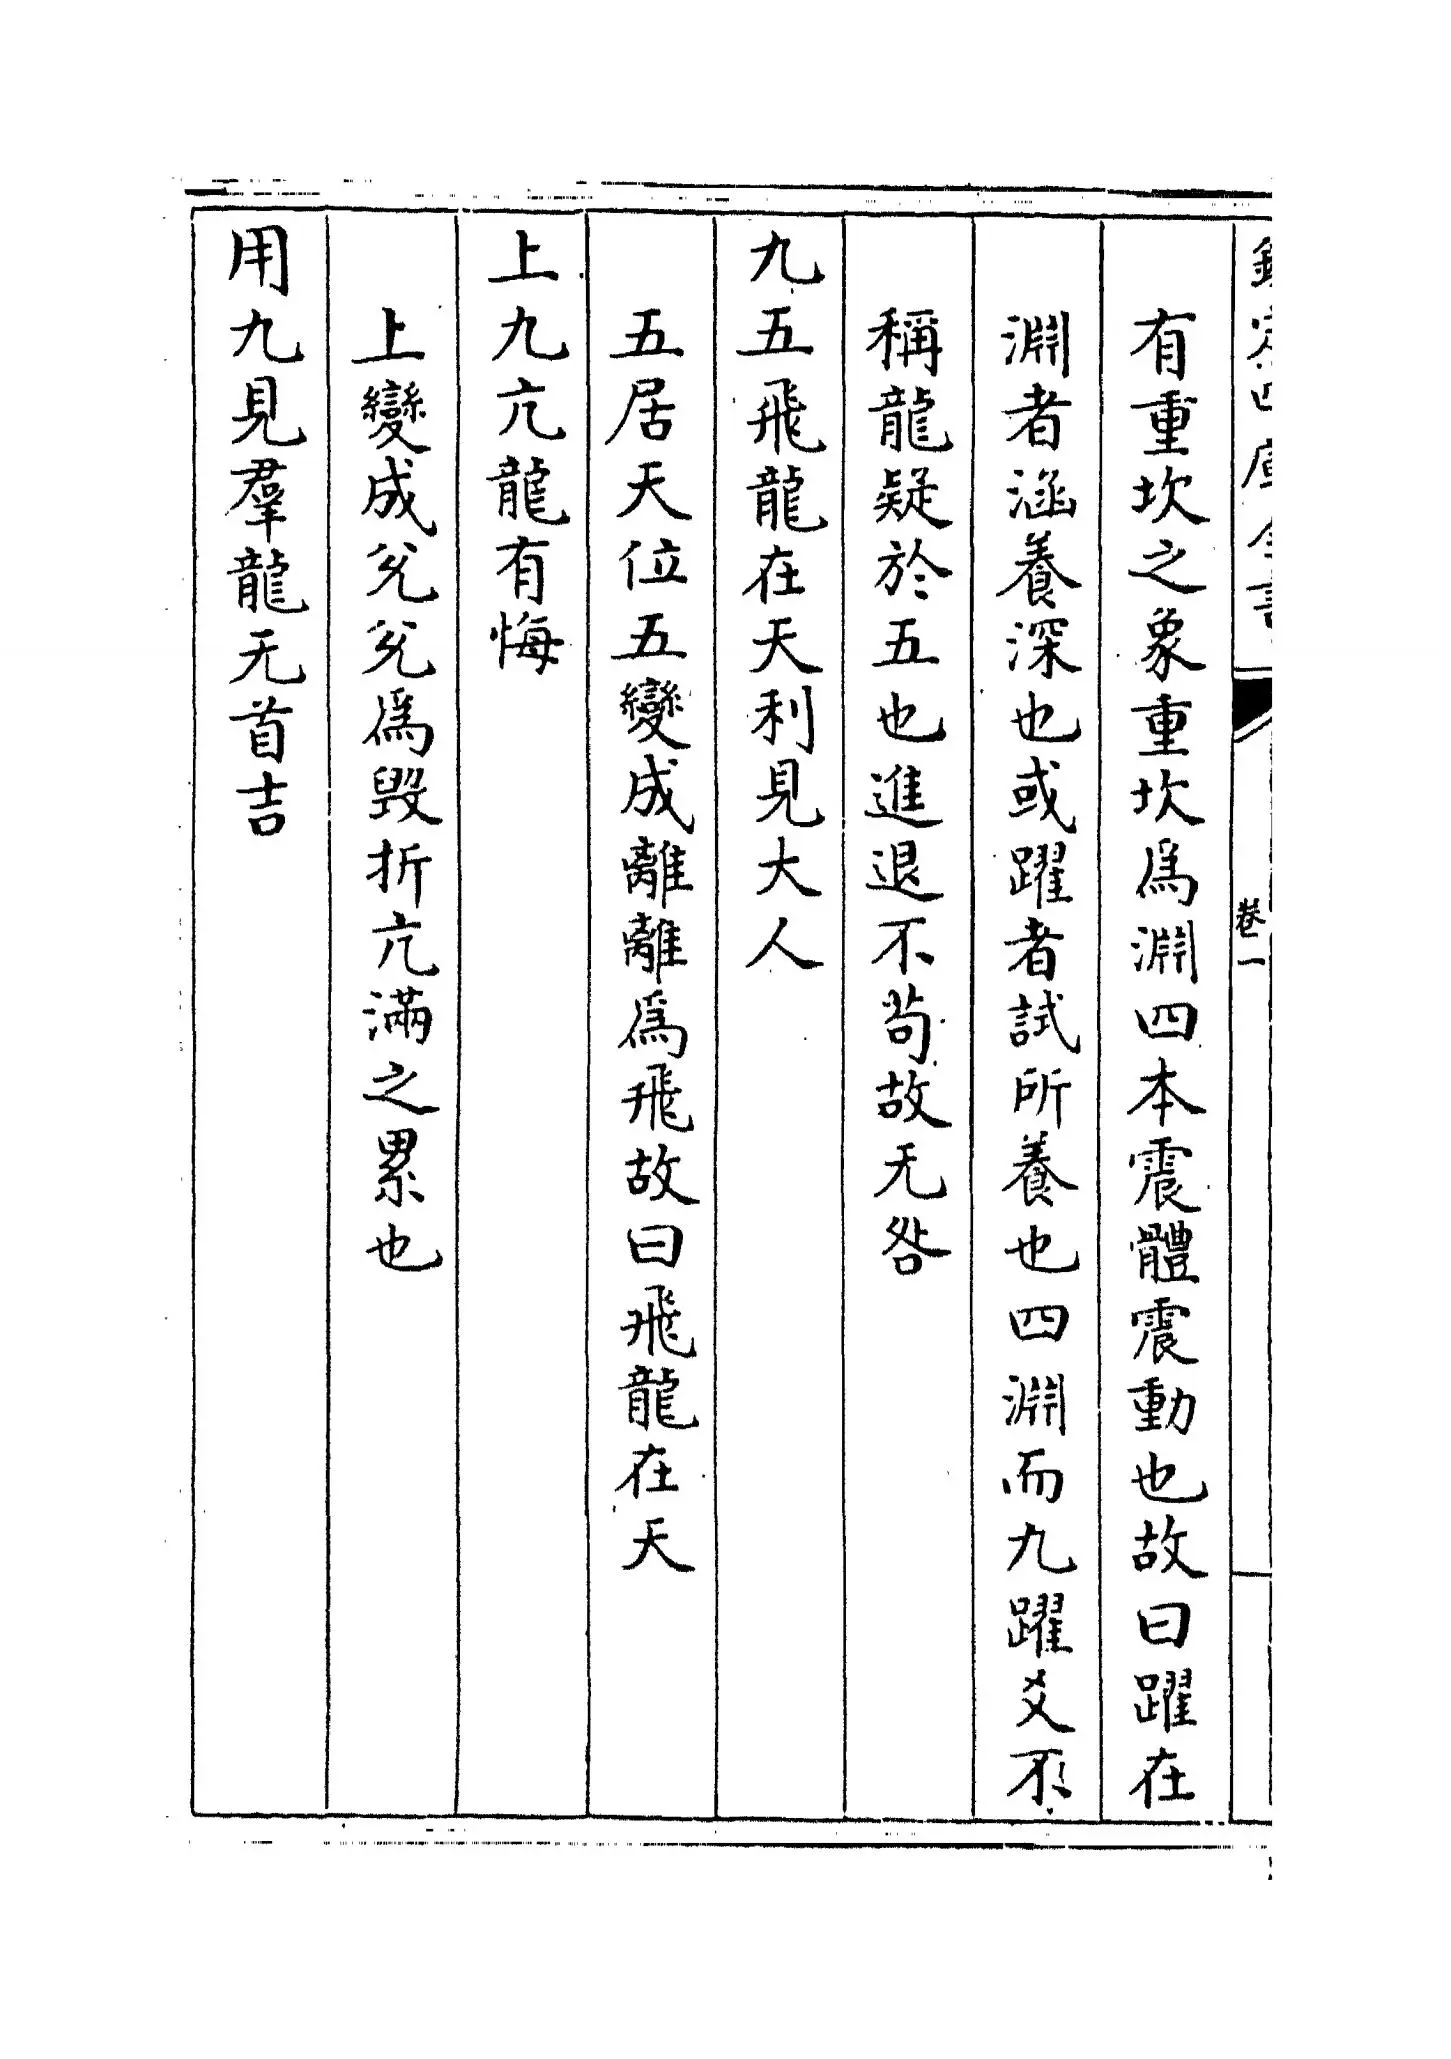 欽定四庫全書
卷一
有重坎之象重坎爲淵四本震體震動也故曰躍在
淵者涵養深也或躍者試所養也四淵而九躍爻不
稱龍疑於五也進退不苟故无咎
九五飛龍在天利見大人
五居天位五變成離離爲飛故曰飛龍在天
上九亢龍有悔
上變成兌兌爲毀折亢滿之累也
用九見羣龍无首吉